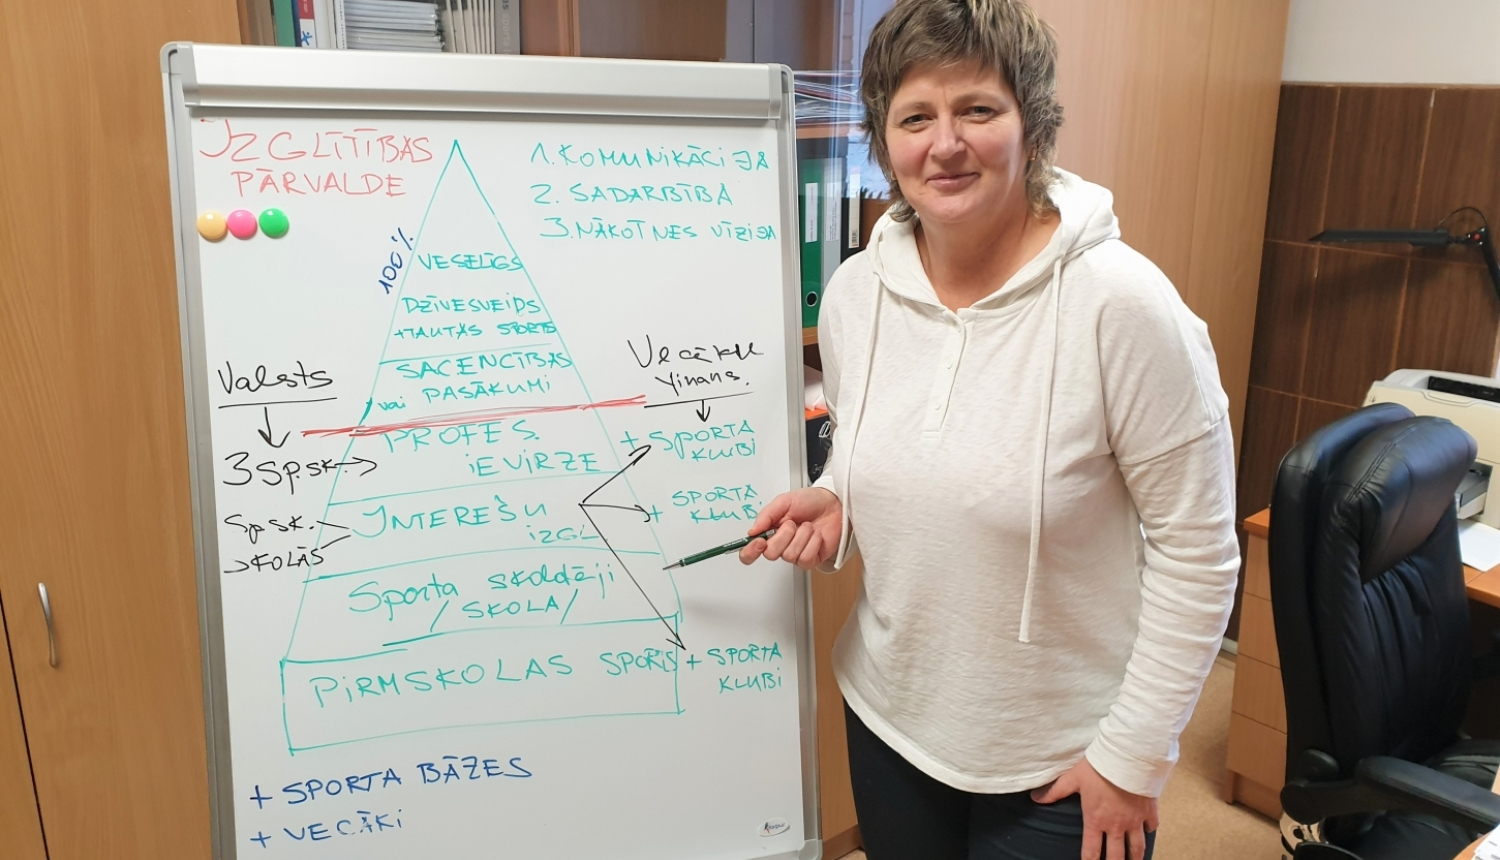 IZGLĪTĪBAS
PĀRVALDE
1. KOMUNIKĀCIJA
2. SADARBĪBA
3. NĀKOTNES VĪZIJA
100%
VESELĪGS
DZĪVESVEIDS
+TAUTAS SPORTS
SACENCĪBAS
vai PASĀKUMI
Valsts
Vecāku
finans.
PROFES.
IEVIRZE
3 SP.SK.
+ SPORTA
KLUBI
INTEREŠU
IZGL
Sp.sk.
SKOLĀS
+ SPORTA
KLUBI
Sporta skolotāji
/SKOLA/
PIRMSKOLAS SPORTS
+ SPORTA
KLUBI
+ SPORTA BĀZES
+ VECĀKI